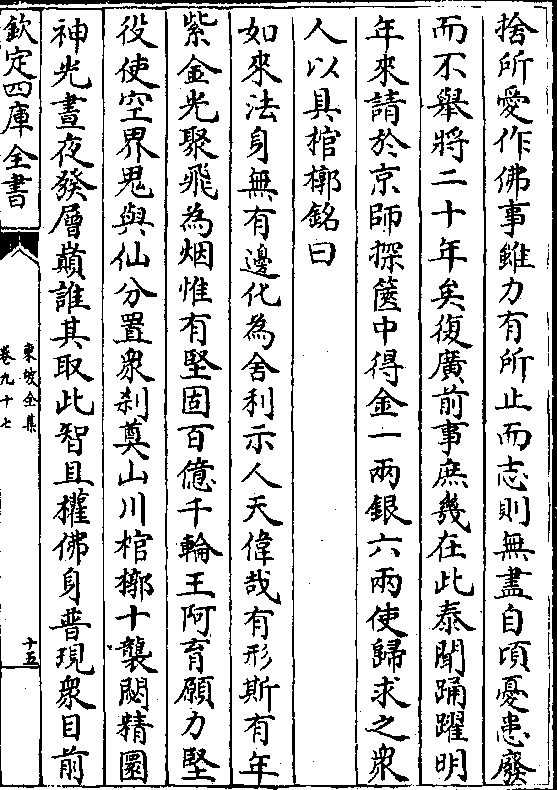 捨所愛作佛事雖力有所止而志則無盡自頃憂患廢
而不舉將二十年矣復廣前事庶幾在此泰聞踊躍明
年來請於京師探篋中得金一兩銀六兩使歸求之衆
人以具棺槨銘曰
如來法身無有邊化為舍利示人天偉哉有形斯有年
紫金光聚飛為烟惟有堅固百億千輪王阿育願力堅
役使空界鬼與仙分置衆刹奠山川棺槨十襲閟精圜
神光晝夜發層巔誰其取此智且權佛身普現衆目前
欽定四庫全書
東坡全集
卷九十七
十五